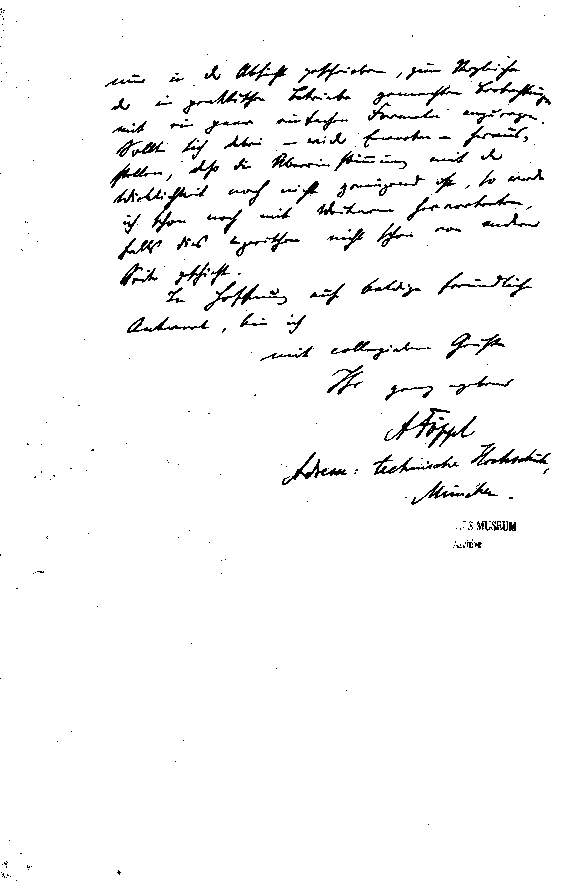 nur in der Absicht geschrieben, zum Vergleiche
der im praktischen Betriebe gemachten Beobachtungen
mit ein paar einfachen Formeln anzuregen.
Sollte sich dabei – wider Erwarten – heraus-
stellen, daß die Übereinstimmung mit der
Wirklichkeit noch nicht genügend ist, so werde
ich schon noch mit Weiterem hervortreten,
falls dies inzwischen nicht schon von anderer
Seite geschieht.
In Hoffnung auf baldige freundliche
Antwort, bin ich
mit collegialem Gruße
Ihr ganz ergebener
A Föppl
Adresse: technische Hochschule,
München.
S MUSEUM
Archive